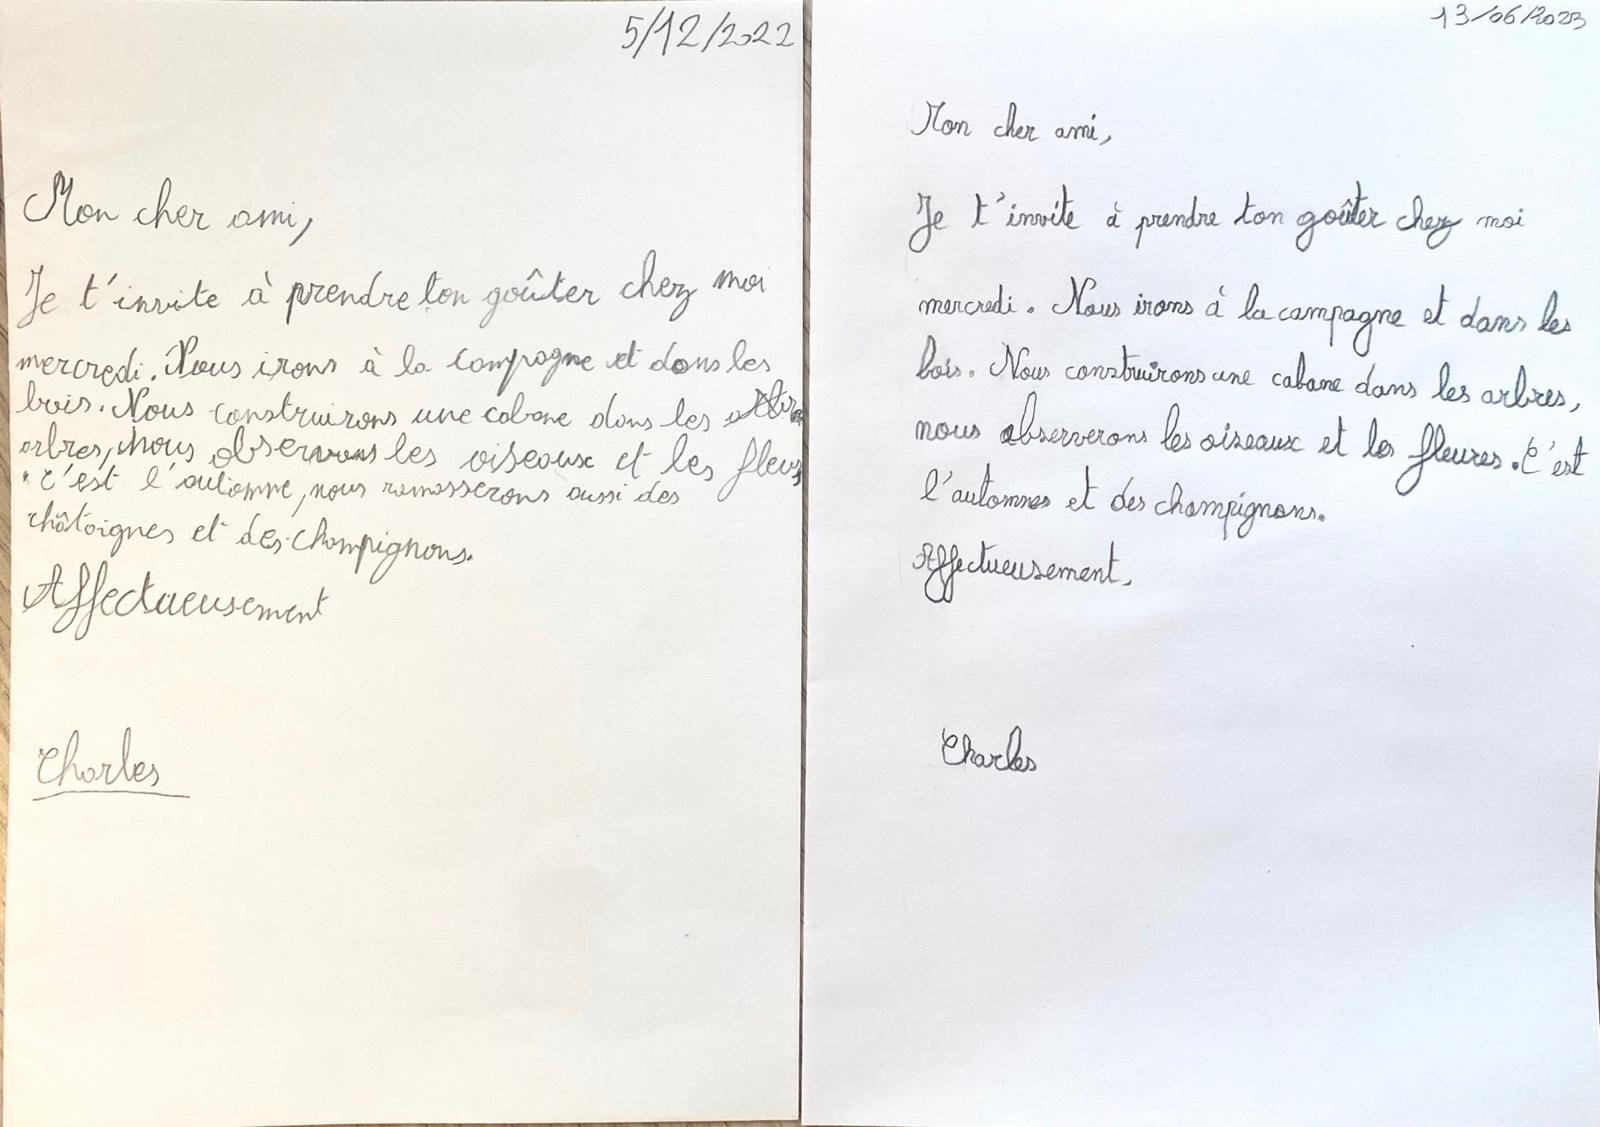 5/12/2022
Mon cher ami,
Je t'invite à prendre ton goûter chez moi
mercredi. Nous irons à la campagne et dans les
bois. Nous construirons une cabane dans les
arbres, nous observons les oiseaux et les fleurs
. C'est l'automne, nous ramasserons aussi des
châtaignes et des champignons.
Affectueusement
Charles
13/06/2023
Mon cher ami,
Je t'invite à prendre ton goûter chez moi
mercredi. Nous irons à la campagne et dans les
bois. Nous construirons une cabane dans les arbres,
nous observerons les oiseaux et les fleures. C'est
l'automnes et des champignons.
Affectueusement,
Charles